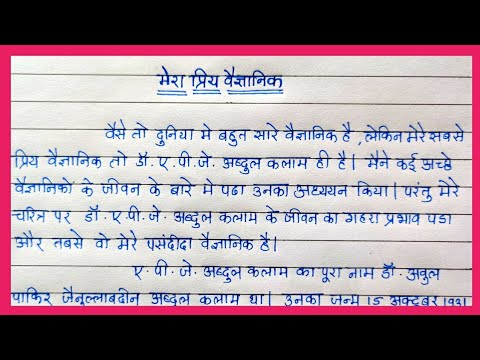 मेरा प्रिय वैज्ञानिक
वैसे तो दुनिया मे बहुत सारे वैज्ञानिक है, लेकिन मेरे सबसे
प्रिय वैज्ञानिक तो डॉ. ए. पी. जे. अब्दुल कलाम ही है। मैने कई अच्छे
वैज्ञानिकों के जीवन के बारे मे पढा उनका अध्ययन किया। परंतु मेरे
चरित्र पर डॉ. ए. पी. जे. अब्दुल कलाम के जीवन का गहरा प्रभाव पडा
और तबसे वो मेरे पसंदीदा वैज्ञानिक है।
ए. पी. जे. अब्दुल कलाम का पूरा नाम डॉ. अवुल
पाकिर जैनुल्लाबदीन अब्दुल कलाम था। उनका जन्म 15 अक्टूबर 1931